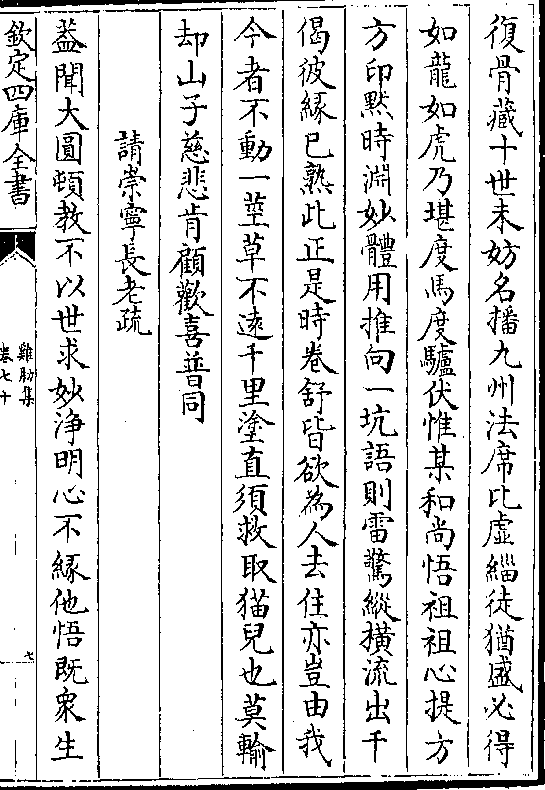 復骨藏十世未妨名播九州法席比虛緇徒猶盛必得
如龍如虎乃堪度馬度驢伏惟某和尚悟祖祖心提方
方印默時淵妙體用推向一坑語則雷驚縱横流出千
偈彼緣已熟此正是時卷舒皆欲為人去住亦豈由我
今者不動一莖草不逺千里塗直須救取猫兒也莫輸
却山子慈悲肯顧歡喜普同
請崇寧長老疏
葢聞大圓頓教不以世求妙浄明心不緣他悟既衆生
欽定四庫全書
雞肋集
卷七十
七